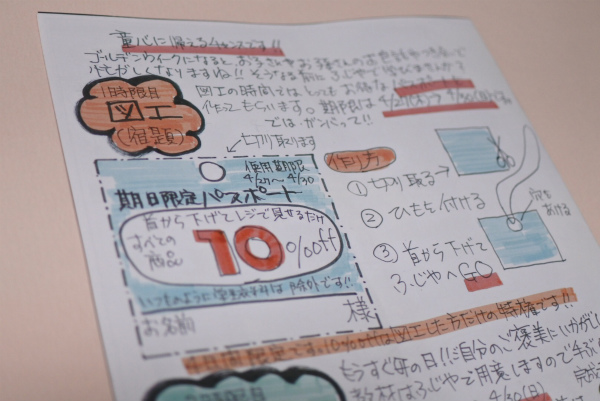 童心に帰えるチャンスです!!
ゴールデンウィークになると、お子さんやお孫さんのお世話や
忙がしくなりますね!!そうなる前にふじやで遊びませんか?
1時限目
図工
(宿題)
図工の時間ではとってもお得なパスポートを
作ってもらいます。期限は4/27(木)〜4/30(日)
では、ガンバって!!
切り取ります
使用期限
4/27〜4/30
期日限定パスポート
首から下げてレジで見せるだけ
すべての
商品
10%off
いつものように学生衣料は除外です!!
お名前
様
作り方
①切り取る→
②ひもを付ける
穴を
あける
③首から下げて
ふじやへGO
4日間限定です、10%offは図工した方だけの特権です!!
もうすぐ母の日!!ご自分のご褒美にいかがし
教材はふじやで用意しますので手ぶ
4/30(日)